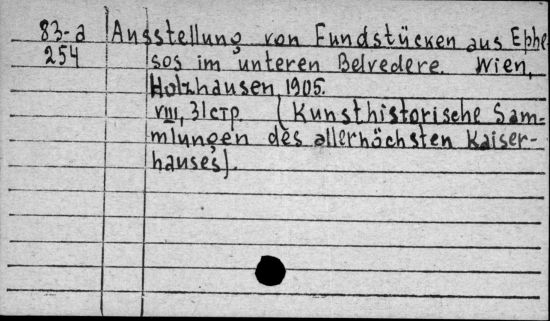 83-a Ausstellung von Fundstücken aus Ephe
254 sos im unteren Belvedere. Wien,
Holzhausen 1905.
VIII, 31 стр. (Kunsthistorische Sam-
mlungen des allerhöchsten Kaiser-
hauses).